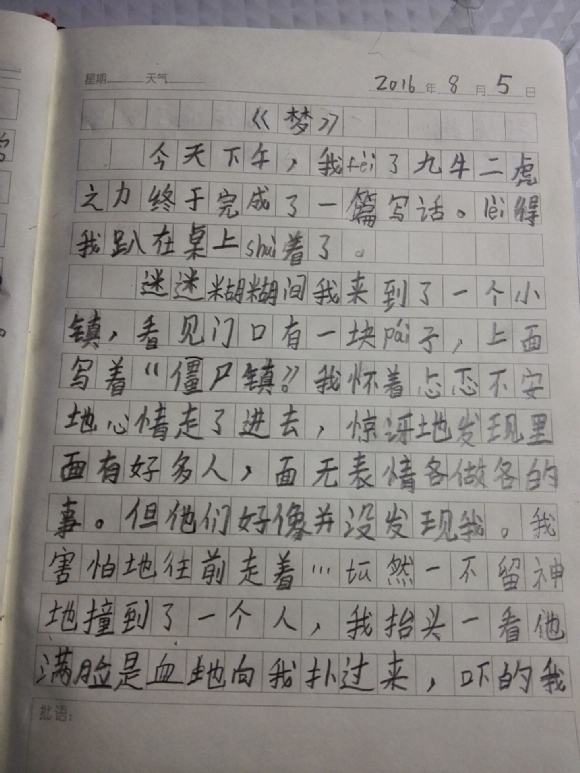 星期 天气 2016年8月5日
《梦》
今天下午，我fèi了九牛二虎
之力终于完成了一篇写话。lèi得
我趴在桌上shuì着了。
迷迷糊糊间我来到了一个小
镇，看见门口有一块pái子，上面
写着“僵尸镇”？我怀着忐忑不安
地心情走了进去，惊讶地发现里
面有好多人，面无表情各做各的
事。但他们好像并没发现我。我
害怕地往前走着…然一不留神
地撞到了一个人，我抬头一看他
满脸是血地向我扑过来，吓的我
批语：